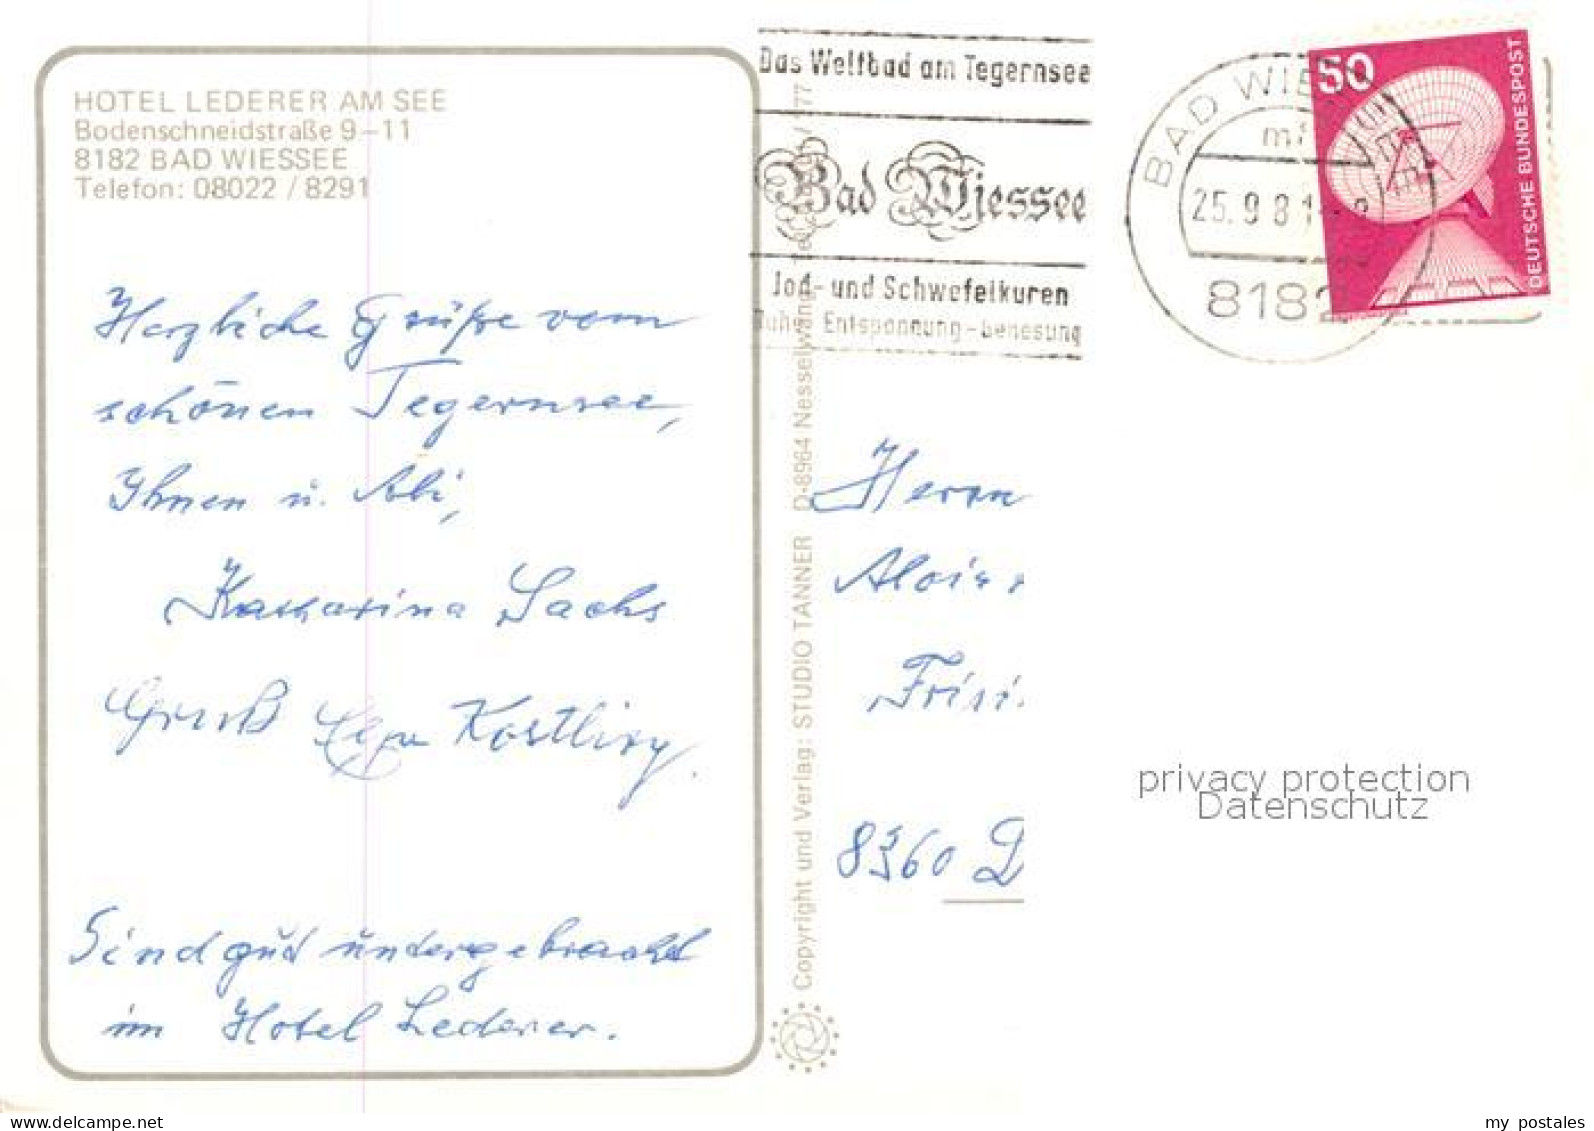 HOTEL LEDERER AM SEE
Bodenschneidstraße 9–11
8182 BAD WIESSEE
Telefon: 08022 / 8291
Herzliche Grüße vom
schönen Tegernsee,
Ihnen u. Abi,
Katharina Sachs
Gruß Kostling.
Sind gut untergebracht
im Hotel Lederer.
Copyright und Verlag: STUDIO TANNER D-8964 Nesselwang
77
Das Weltbad am Tegernsee
Bad Wiessee
Jod- und Schwefelkuren
Entspannung-Genesung
BAD WIESSEE
25.9.81
8182
50
DEUTSCHE BUNDESPOST
Herrn
Alois
8360 D
privacy protection
Datenschutz
www.delcampe.net
my_postales